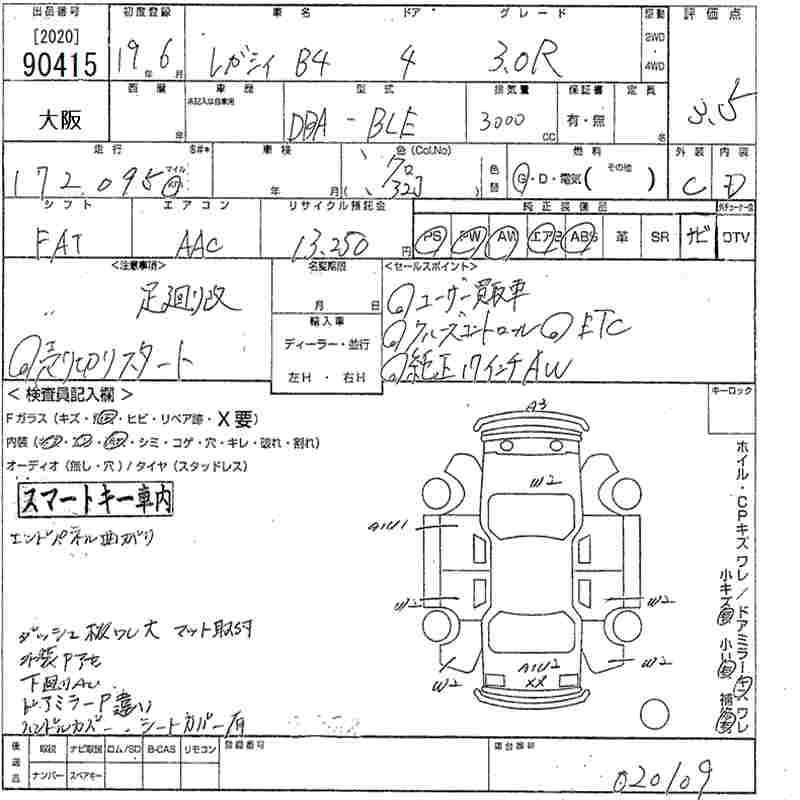 出品番号 初度登録 車名 ドア・ グレード 駆動 評価点
[2020]
90415 19年 6月 レガシィ B4 4 3.0R 2WD・4WD 3.5
西暦 年 車歴 未記入は自家用 型式 排気量 保証書 定員
大阪 DBA - BLE 3000 CC 有・無 名
走行 S#* 車検 色(Col.No) 燃料 外装 内装
172,095 マイル km 年 月 クロ (32J) 色替 G・D・電気( その他 ) C D
シフト エアコン リサイクル預託金 純正装備品
FAT AAC 13,250円 PS PW AW エアB ABS 革 SR ナビ DTV
<注意事項> 名変期限 <セールスポイント>
足廻り改 月 日 ユーザー買取車
輸入車 クルーズコントロール ETC
売り切りスタート ディーラー・並行 純正17インチAW
左H ・ 右H
<検査員記入欄> キーロック
Fガラス(キズ・・ヒビ・リペア跡・X要)
内装(・シミ・コゲ・穴・キレ・破れ・割れ)
オーディオ(無し・穴)/タイヤ(スタッドレス)
スマートキー車内
エンドパネル曲がり
ダッシュ板ワレ大 マット取付
外装Pアセ
下廻りAU
ドアミラーP違い
ハンドルカバー、シートカバー有
A3
W2
A1U1
W2 W2
W2 W2
A1U2
XX
ホイル・CPキズワレ/ドアミラーキズワレ
小キズ 小凹 補修
後送品 取説 ナビ取説 ロム/SD B-CAS リモコン 登録番号 車台番号
ナンバー スペアキー 020109